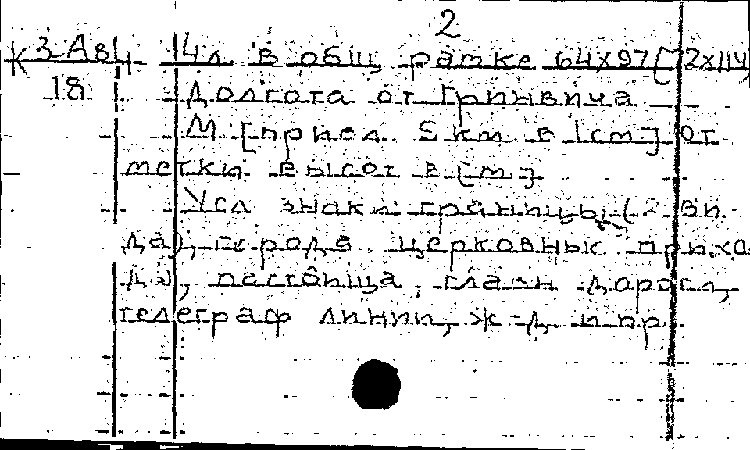 2
К 3-Ав4 14л. в общ. рамке 64х97 [72х114
18 Долгота от Гринвича
М [прибл. 5 km в 1 cm] От
метки высот в [m]
Усл знаки границы (2 ви
да), города церковных прихо
дов, пастбища, главн дороги,
телеграф линии, ж-д. и пр.